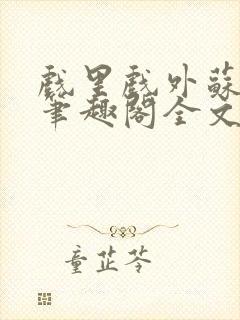 戲里戲外蘇
筆趣閣全文
童芷苓